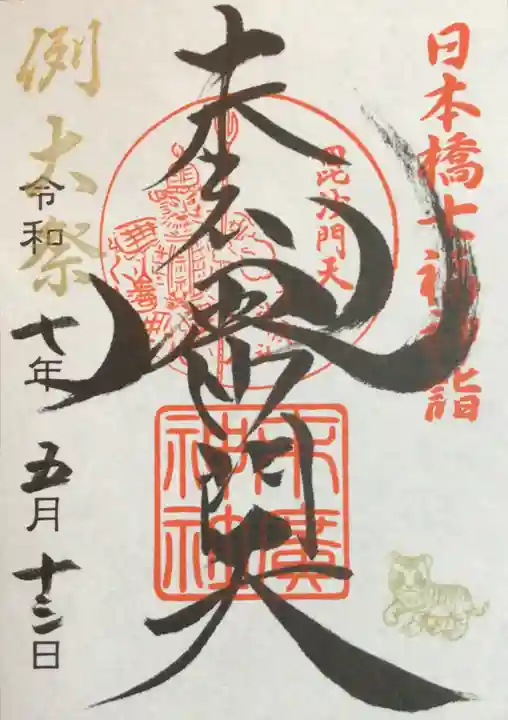 日本橋七福神詣
毘沙門天
毘沙門天
末廣
神社
例大祭
令和七年五月十三日